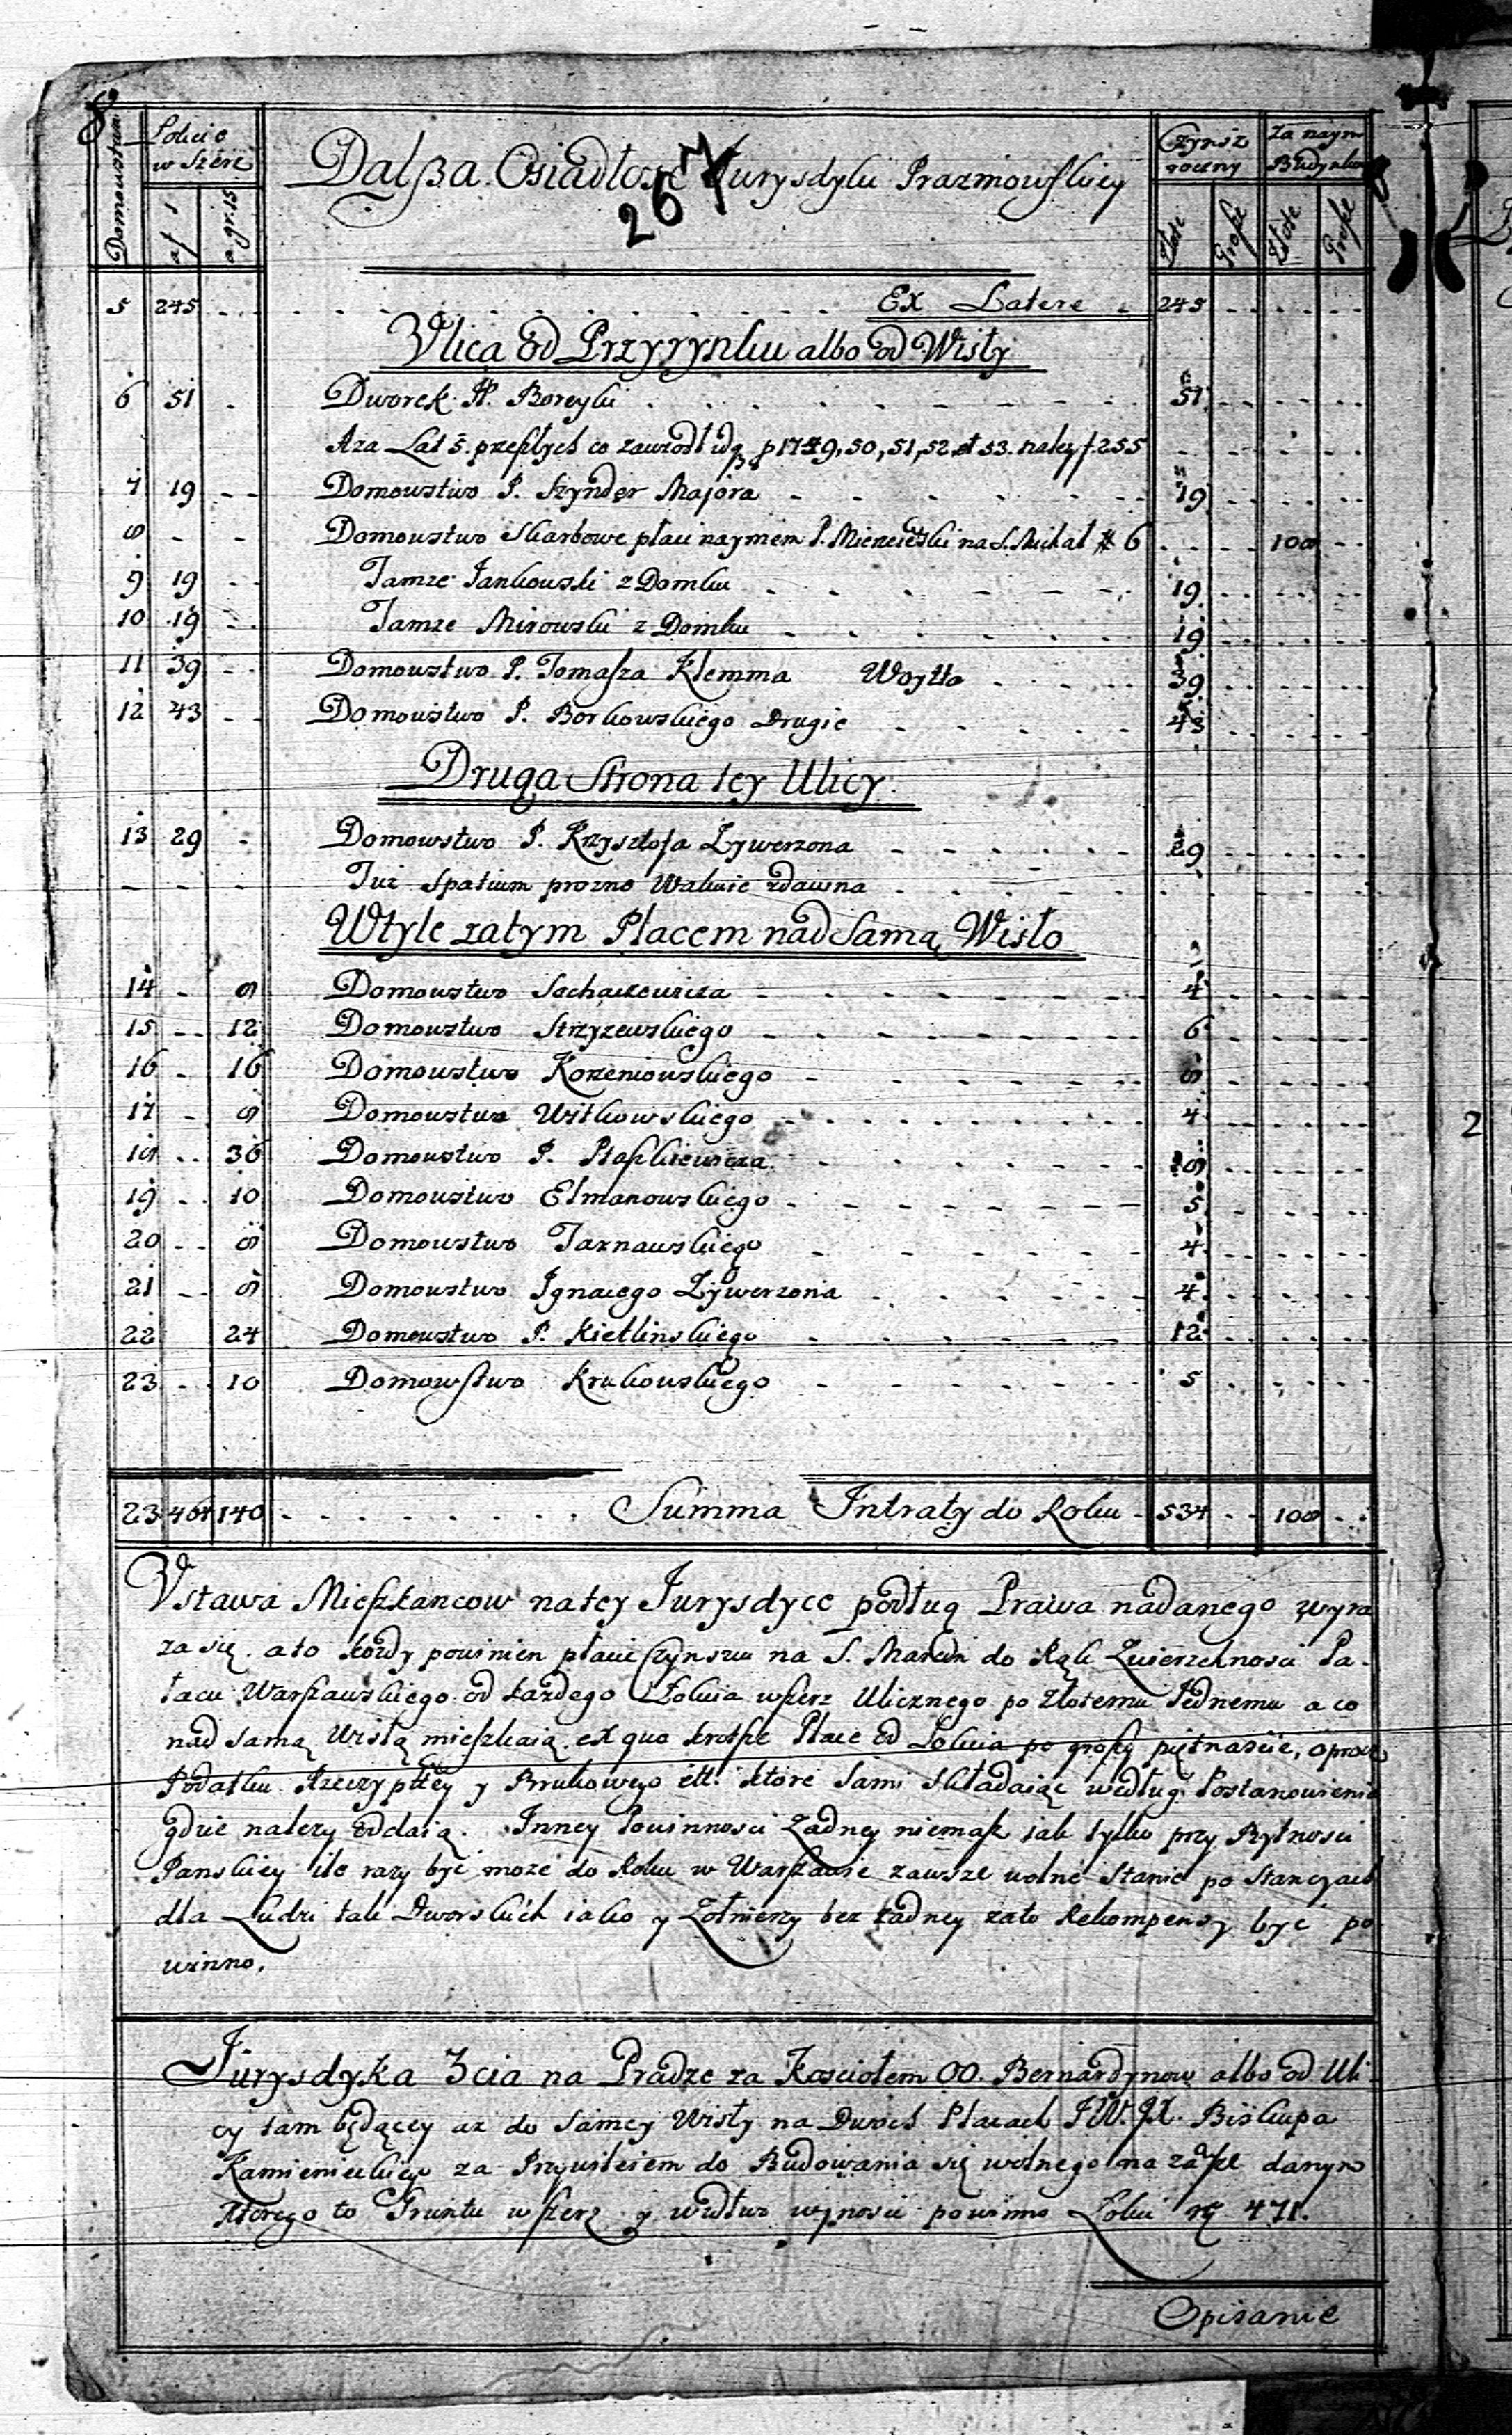 8.
Domowstwa Łokcie w Szerz Dalsza Osiadłosc Jurysdyki Prazmowskiey Czynsz roczny Za naym Budynkow
267
a f 1 a gr. 15 Złote Grosze Złote Grosze
5 245 Ex Latere 245
Ulica od Przyrynku albo od Wisły
6 51 Dworek P. Boreyki 51
A za Lat 5. przeszłych co zawiodł idą p 1749, 50, 51, 52, et 53. należy f. 255
7 19 Domowstwo P. Szynder Majora 19
8 Domowstwo Skarbowe płaci naymem P. Mierzeiewski na S. Michał # 6 108
9 19 Tamze Jankowski z Domku 19
10 19 Tamze Mirowski z Domku 19
11 39 Domowstwo P. Tomasza Klemma Woytta 39
12 43 Domowstwo P. Borkowskiego Drugie 43
Druga Strona tey Ulicy
13 29 Domowstwo P. Krzysztofa Zywerzona 29
Tuz Spatium prozno Wakuie zdawna
Wtyle zatym Placem nad Samą Wisło
14 8 Domowstwo Sochaczewicza 4
15 12 Domowstwo Strzyzewskiego 6
16 16 Domowstwo Korzeniowskiego 8
17 8 Domowstwo Witkowskiego 4
18 36 Domowstwo P. Staszkiewicza 18
19 10 Domowstwo Elmanowskiego 5
20 8 Domowstwo Tarnawskiego 4
21 8 Domowstwo Ignacego Zywerzona 4
22 24 Domowstwo P. Kietlinskiego 12
23 10 Domowstwo Krukowskiego 5
23 464 140 Summa Intraty do Roku 534 108
Ustawa Mieszkancow na tey Jurysdyce podług Prawa nadanego wyra
za się. a to kozdy powinien płacic Czynszu na S. Marcin do Rąk Zwierzchnosci Pa-
łacu Warszawskiego od kazdego Łokcia wszerz Ulicznego po Złotemu Jednemu a co
nad samą Wisłą mieszkaią, ex quo krotsze Place od Łokcia po groszy piętnascie, oprocz
Podatku Rzeczyptey y Brukowego ett. ktore Sami składaiąc według Postanowienia
gdzie nalezy oddaią. Inney Powinnosci Zadney niemasz iak tylko przy Bytnosci
Panskiey ile razy być może do Roku w Warszawie zawsze wolne Stanie po Stancyach
dla Ludzi tak Dworskich iako y Zołnierzy bez zadney zato Rekompensy byc po
winno.
Jurysdyka 3cia na Pradze za Kosciołem OO. Bernardynow albo od Uli-
cy tam będącey az do Samey Wisły na Dwoch Placach JW. JX. Biskupa
Kamienieckiego za Przywileiem do Budowania się wolnego na zawsze danym
ktorego to Gruntu wszerz y wzdłuz wynosic powinno Łokci nr 471.
Opisanie
2